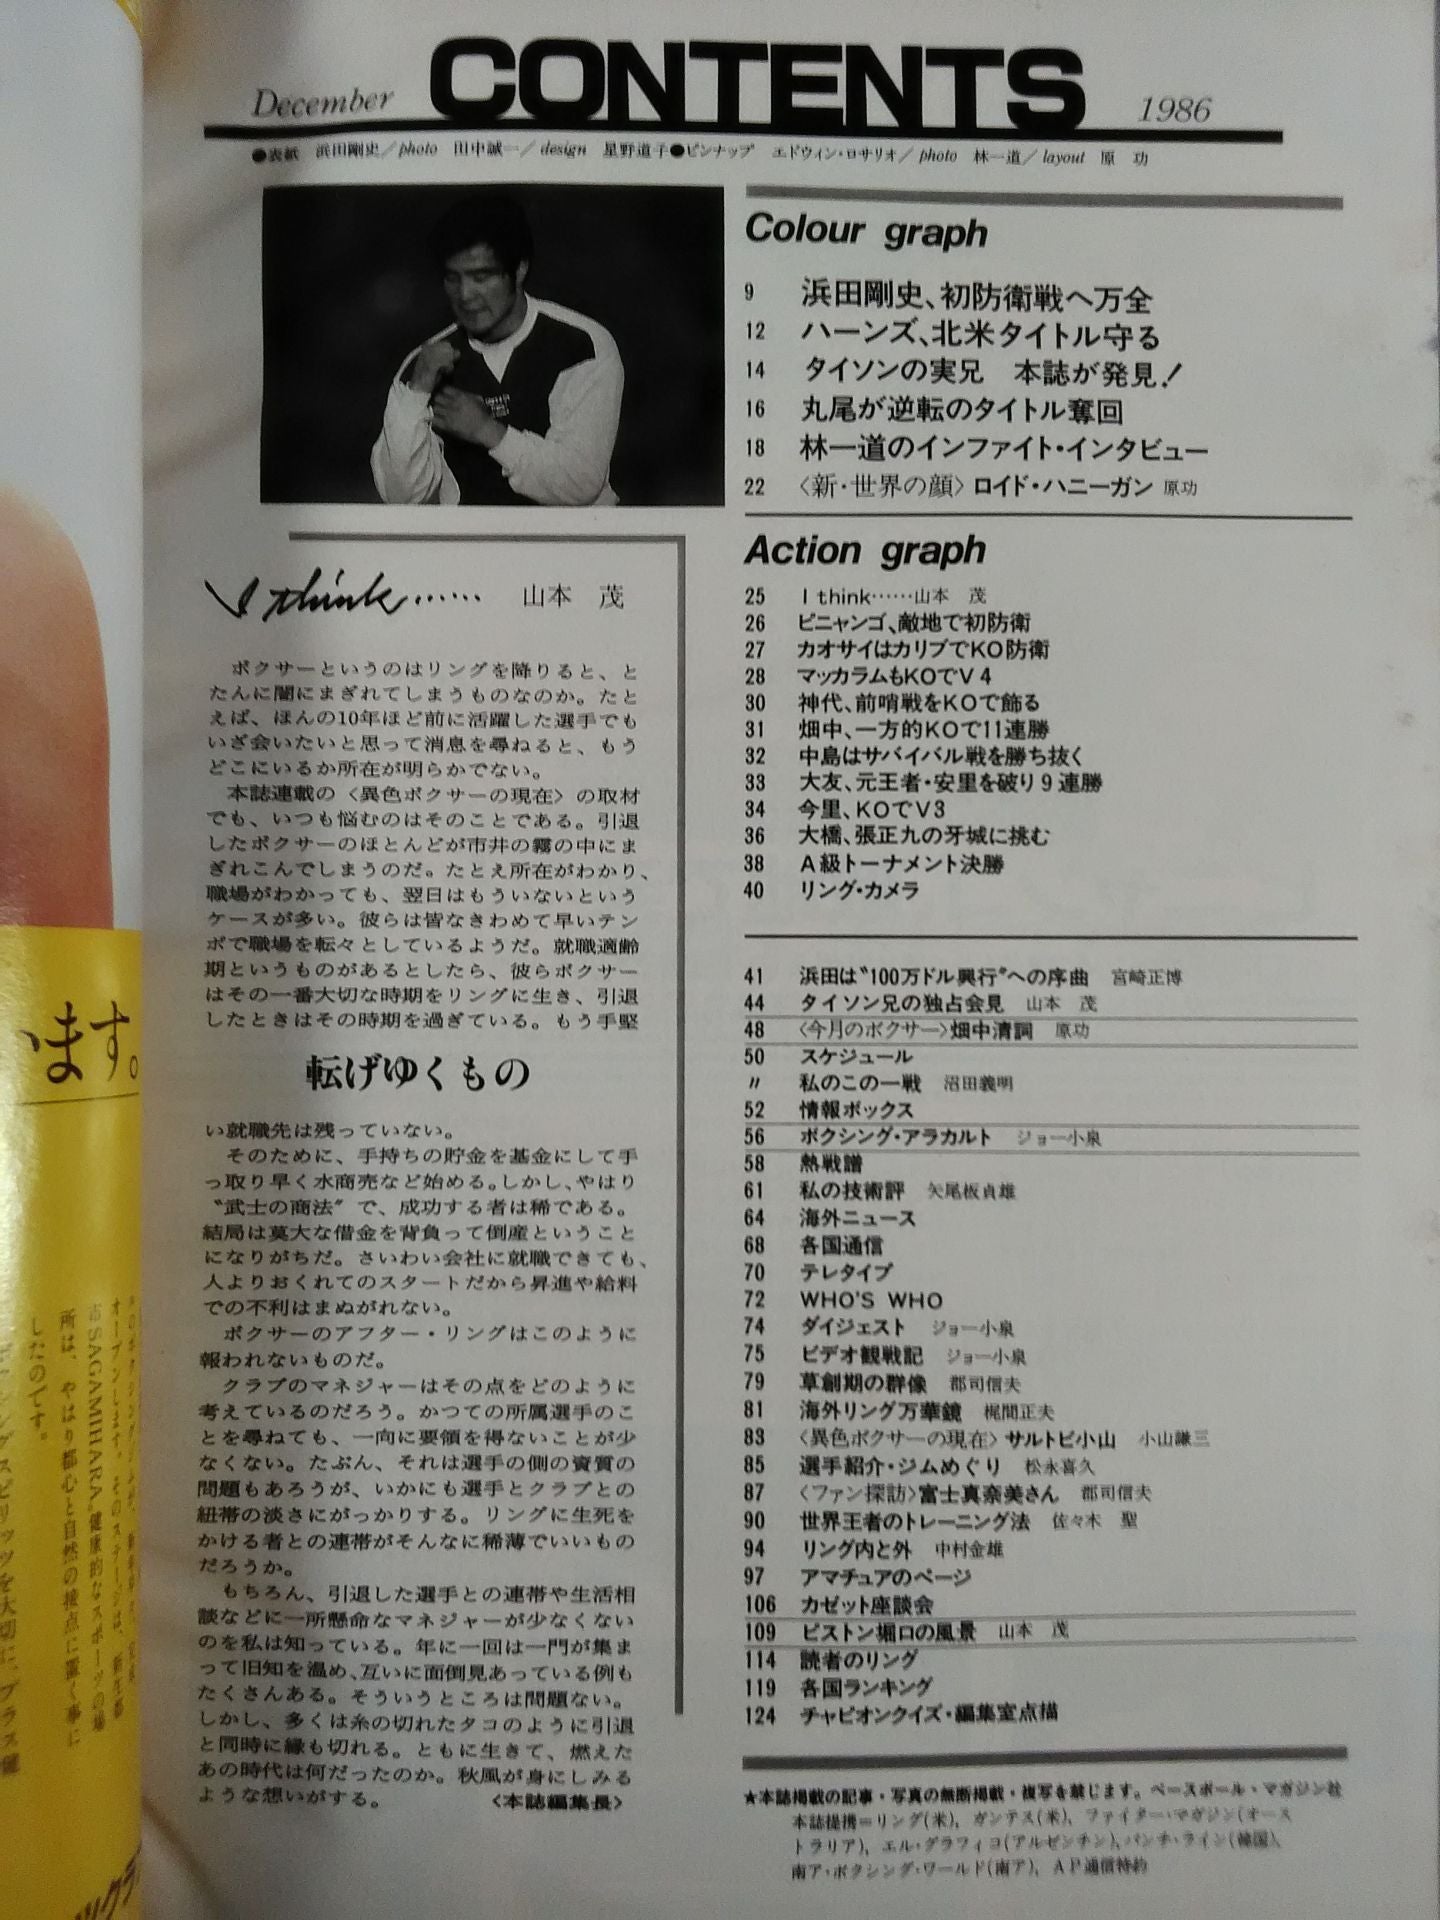 December CONTENTS 1986
●表紙　浜田剛史／photo　田中誠一／design　星野道子●ピンナップ　エドウィン・ロサリオ／photo　林一道／layout　原　功
I think……　山本　茂
ボクサーというのはリングを降りると、と
たんに闇にまぎれてしまうものなのか。たと
えば、ほんの10年ほど前に活躍した選手でも
いざ会いたいと思って消息を尋ねると、もう
どこにいるか所在が明らかでない。
本誌連載の〈異色ボクサーの現在〉の取材
でも、いつも悩むのはそのことである。引退
したボクサーのほとんどが市井の霧の中にま
ぎれこんでしまうのだ。たとえ所在がわかり、
職場がわかっても、翌日はもういないという
ケースが多い。彼らは皆なきわめて早いテン
ポで職場を転々としているようだ。就職適齢
期というものがあるとしたら、彼らボクサー
はその一番大切な時期をリングに生き、引退
したときはその時期を過ぎている。もう手堅
転げゆくもの
い就職先は残っていない。
そのために、手持ちの貯金を基金にして手
っ取り早く水商売など始める。しかし、やはり
〝武士の商法〟で、成功する者は稀である。
結局は莫大な借金を背負って倒産ということ
になりがちだ。さいわい会社に就職できても、
人よりおくれてのスタートだから昇進や給料
での不利はまぬがれない。
ボクサーのアフター・リングはこのように
報われないものだ。
クラブのマネジャーはその点をどのように
考えているのだろう。かつての所属選手のこ
とを尋ねても、一向に要領を得ないことが少
なくない。たぶん、それは選手の側の資質の
問題もあろうが、いかにも選手とクラブとの
紐帯の淡さにがっかりする。リングに生死を
かける者との連帯がそんなに稀薄でいいもの
だろうか。
もちろん、引退した選手との連帯や生活相
談などに一所懸命なマネジャーが少なくない
のを私は知っている。年に一回は一門が集ま
って旧知を温め、互いに面倒見あっている例も
たくさんある。そういうところは問題ない。
しかし、多くは糸の切れたタコのように引退
と同時に縁も切れる。ともに生きて、燃えた
あの時代は何だったのか。秋風が身にしみる
ような想いがする。　〈本誌編集長〉
Colour graph
9　浜田剛史、初防衛戦へ万全
12　ハーンズ、北米タイトル守る
14　タイソンの実兄　本誌が発見！
16　丸尾が逆転のタイトル奪回
18　林一道のインファイト・インタビュー
22　〈新・世界の顔〉ロイド・ハニーガン　原功
Action graph
25　I think……山本　茂
26　ピニャンゴ、敵地で初防衛
27　カオサイはカリブでKO防衛
28　マッカラムもKOでV4
30　神代、前哨戦をKOで飾る
31　畑中、一方的KOで11連勝
32　中島はサバイバル戦を勝ち抜く
33　大友、元王者・安里を破り9連勝
34　今里、KOでV3
36　大橋、張正九の牙城に挑む
38　A級トーナメント決勝
40　リング・カメラ
41　浜田は〝100万ドル興行〟への序曲　宮崎正博
44　タイソン兄の独占会見　山本　茂
48　〈今月のボクサー〉畑中清詞　原功
50　スケジュール
〃　私のこの一戦　沼田義明
52　情報ボックス
56　ボクシング・アラカルト　ジョー小泉
58　熱戦譜
61　私の技術評　矢尾板貞雄
64　海外ニュース
68　各国通信
70　テレタイプ
72　WHO'S WHO
74　ダイジェスト　ジョー小泉
75　ビデオ観戦記　ジョー小泉
79　草創期の群像　郡司信夫
81　海外リング万華鏡　梶間正夫
83　〈異色ボクサーの現在〉サルトビ小山　小山謙三
85　選手紹介・ジムめぐり　松永喜久
87　〈ファン探訪〉富士真奈美さん　郡司信夫
90　世界王者のトレーニング法　佐々木　聖
94　リング内と外　中村金雄
97　アマチュアのページ
106　カゼット座談会
109　ピストン堀口の風景　山本　茂
114　読者のリング
119　各国ランキング
124　チャピオンクイズ・編集室点描
★本誌掲載の記事・写真の無断掲載・複写を禁じます。ベースボール・マガジン社
本誌提携＝リング(米)、ガンテス(米)、ファイター・マガジン(オース
トラリア)、エル・グラフィコ(アルゼンチン)、パンチ・ライン(韓国)、
南ア・ボクシング・ワールド(南ア)、AP通信特約
います。
市SAGAMIHARA。健康的なスポーツの場
所は、やはり都心と自然の接点に置く事に
したのです。